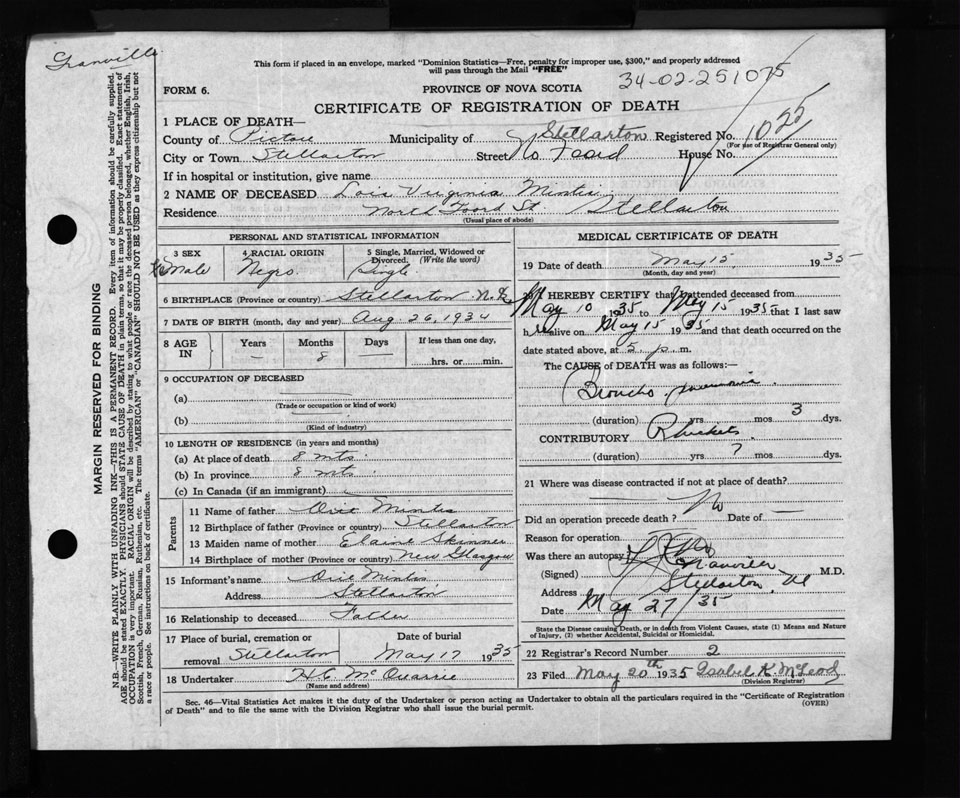 Granville
This form if placed in an envelope, marked "Dominion Statistics—Free, penalty for improper use, $300," and properly addressed
will pass through the Mail "FREE"
34-02-251075
FORM 6.
PROVINCE OF NOVA SCOTIA
CERTIFICATE OF REGISTRATION OF DEATH
1 PLACE OF DEATH—
County of Pictou Municipality of Stellarton Registered No. 1025
(For use of Registrar General only)
City or Town Stellarton Street No. Foord House No.
If in hospital or institution, give name
2 NAME OF DECEASED Lois Virginia Mintis
Residence North Foord St. Stellarton
(Usual place of abode)
PERSONAL AND STATISTICAL INFORMATION
3 SEX 4 RACIAL ORIGIN 5 Single, Married, Widowed or Divorced. (Write the word)
Female Negro Single
6 BIRTHPLACE (Province or country) Stellarton N.S.
7 DATE OF BIRTH (month, day and year) Aug. 26, 1934
8 AGE IN Years Months Days If less than one day,
— 8 — hrs. or min.
9 OCCUPATION OF DECEASED
(a)
(Trade or occupation or kind of work)
(b)
(Kind of industry)
10 LENGTH OF RESIDENCE (in years and months)
(a) At place of death 8 mts.
(b) In province 8 mts.
(c) In Canada (if an immigrant)
Parents
11 Name of father Mintis
12 Birthplace of father (Province or country) Stellarton
13 Maiden name of mother Elaine Skinner
14 Birthplace of mother (Province or country) New Glasgow
15 Informant's name Mintis
Address Stellarton
16 Relationship to deceased Father
17 Place of burial, cremation or removal Stellarton Date of burial May 17 1935
18 Undertaker H.C. McQuarrie
(Name and address)
MEDICAL CERTIFICATE OF DEATH
19 Date of death May 15, 1935
(Month, day and year)
20 I HEREBY CERTIFY that I attended deceased from
May 10 1935 to May 15 1935 that I last saw
h alive on May 15 1935 and that death occurred on
date stated above, at 5 p. m.
The CAUSE of DEATH was as follows:—
Broncho pneumonia
(duration) yrs mos 3 dys.
CONTRIBUTORY Rhickets
(duration) yrs ? mos dys.
21 Where was disease contracted if not at place of death?
Did an operation precede death? No Date of —
Reason for operation
Was there an autopsy No
(Signed) Granville M.D.
Address Stellarton NS
Date May 27/35
State the Disease causing Death, or in death from Violent Causes, state (1) Means and Nature
of Injury, (2) whether Accidental, Suicidal or Homicidal.
22 Registrar's Record Number 2
23 Filed May 20th 1935 Isabel K. McLeod
(Division Registrar)
Sec. 46—Vital Statistics Act makes it the duty of the Undertaker or person acting as Undertaker to obtain all the particulars required in the "Certificate of Registration
of Death" and to file the same with the Division Registrar who shall issue the burial permit.
(OVER)
MARGIN RESERVED FOR BINDING
N.B.—WRITE PLAINLY WITH UNFADING INK—THIS IS A PERMANENT RECORD. Every item of information should be carefully supplied.
AGE should be stated EXACTLY. PHYSICIANS should STATE CAUSE OF DEATH in plain terms, so that it may be properly classified. Exact statement of
OCCUPATION is very important. RACIAL ORIGIN will be described by stating to what people or race the deceased person belonged, whether English, Irish,
Scottish, French, German, Russian, Ruthenian, etc. The terms "AMERICAN" or "CANADIAN" SHOULD NOT BE USED as they express citizenship but not
a race or people. See instructions on back of certificate.